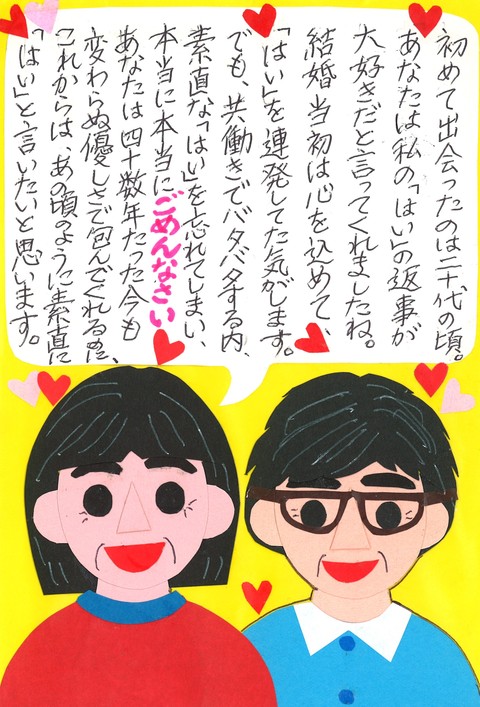 初めて出会ったのは二十代の頃。
あなたは私の「はい」の返事が
大好きだと言ってくれましたね。
結婚当初は心を込めて、
「はい」を連発してた気がします。
でも、共働きでバタバタする内、
素直な「はい」を忘れてしまい、
本当に本当にごめんなさい
あなたは四十数年たった今も
変わらぬ優しさで包んでくれるのに、
これからは、あの頃のように素直に
「はい」と言いたいと思います。